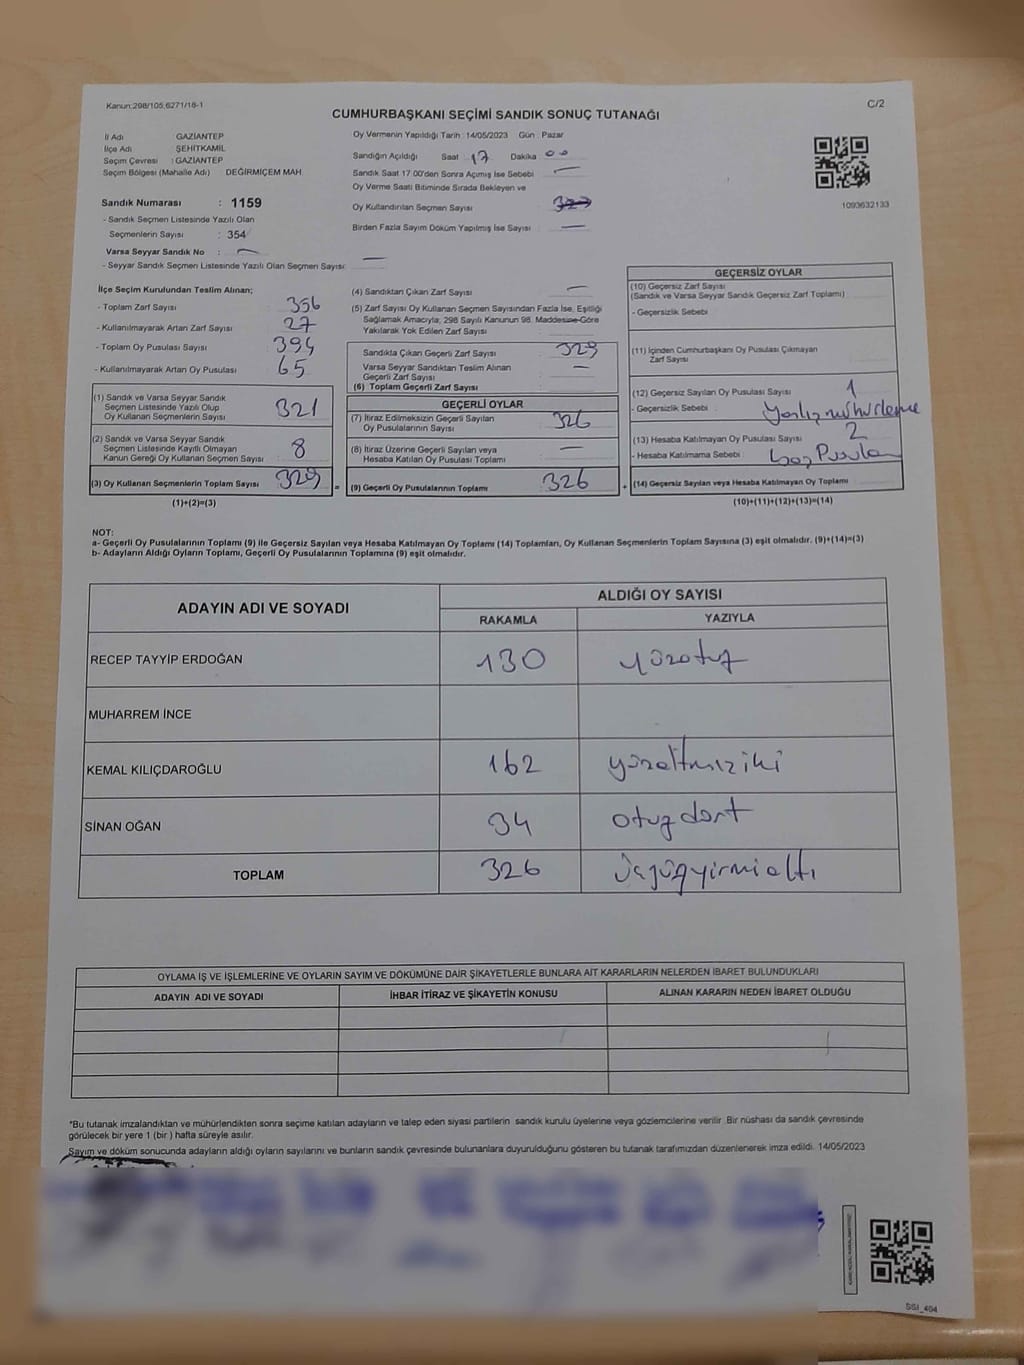 Kanun:298/105,6271/16-1
C/2
CUMHURBAŞKANI SEÇİMİ SANDIK SONUÇ TUTANAĞI
İl Adı GAZİANTEP
İlçe Adı ŞEHİTKAMİL
Seçim Çevresi : GAZİANTEP
Seçim Bölgesi (Mahalle Adı) DEĞİRMİÇEM MAH.
Sandık Numarası : 1159
- Sandık Seçmen Listesinde Yazılı Olan
Seçmenlerin Sayısı : 354
Varsa Seyyar Sandık No : —
- Seyyar Sandık Seçmen Listesinde Yazılı Olan Seçmen Sayısı: —
Oy Vermenin Yapıldığı Tarih : 14/05/2023 Gün : Pazar
Sandığın Açıldığı Saat 17 Dakika 00
Sandık Saat 17.00'den Sonra Açımış İse Sebebi —
Oy Verme Saati Bitiminde Sırada Bekleyen ve
Oy Kullandırılan Seçmen Sayısı
Birden Fazla Sayım Döküm Yapılmış İse Sayısı —
1093632133
İlçe Seçim Kurulundan Teslim Alınan;
- Toplam Zarf Sayısı 356
- Kullanılmayarak Artan Zarf Sayısı 27
- Toplam Oy Pusulası Sayısı 394
- Kullanılmayarak Artan Oy Pusulası 65
(1) Sandık ve Varsa Seyyar Sandık
Seçmen Listesinde Yazılı Olup
Oy Kullanan Seçmenlerin Sayısı 321
(2) Sandık ve Varsa Seyyar Sandık
Seçmen Listesinde Kayıtlı Olmayan
Kanun Gereği Oy Kullanan Seçmen Sayısı 8
(3) Oy Kullanan Seçmenlerin Toplam Sayısı 329
(1)+(2)=(3)
(4) Sandıktan Çıkan Zarf Sayısı —
(5) Zarf Sayısı Oy Kullanan Seçmen Sayısından Fazla İse, Eşitliği
Sağlamak Amacıyla, 298 Sayılı Kanunun 98. Maddesine Göre
Yakılarak Yok Edilen Zarf Sayısı
Sandıkta Çıkan Geçerli Zarf Sayısı 329
Varsa Seyyar Sandıktan Teslim Alınan
Geçerli Zarf Sayısı —
(6) Toplam Geçerli Zarf Sayısı
=
GEÇERLİ OYLAR
(7) İtiraz Edilmeksizin Geçerli Sayılan
Oy Pusulalarının Sayısı 326
(8) İtiraz Üzerine Geçerli Sayılan veya
Hesaba Katılan Oy Pusulası Toplamı —
(9) Geçerli Oy Pusulalarının Toplamı 326
+
GEÇERSİZ OYLAR
(10) Geçersiz Zarf Sayısı
(Sandık ve Varsa Seyyar Sandık Geçersiz Zarf Toplamı)
- Geçersizlik Sebebi
(11) İçinden Cumhurbaşkanı Oy Pusulası Çıkmayan
Zarf Sayısı
(12) Geçersiz Sayılan Oy Pusulası Sayısı 1
- Geçersizlik Sebebi :
(13) Hesaba Katılmayan Oy Pusulası Sayısı 2
- Hesaba Katılmama Sebebi : boş Pusula
(14) Geçersiz Sayılan veya Hesaba Katılmayan Oy Toplamı
(10)+(11)+(12)+(13)=(14)
NOT:
a- Geçerli Oy Pusulalarının Toplamı (9) ile Geçersiz Sayılan veya Hesaba Katılmayan Oy Toplamı (14) Toplamları, Oy Kullanan Seçmenlerin Toplam Sayısına (3) eşit olmalıdır. (9)+(14)=(3)
b- Adayların Aldığı Oyların Toplamı, Geçerli Oy Pusulalarının Toplamına (9) eşit olmalıdır.
ADAYIN ADI VE SOYADI
ALDIĞI OY SAYISI
RAKAMLA YAZIYLA
RECEP TAYYİP ERDOĞAN 130 yüzotuz
MUHARREM İNCE
KEMAL KILIÇDAROĞLU 162 yüzaltmışiki
SİNAN OĞAN 34 otuzdört
TOPLAM 326 üçyüzyirmialtı
OYLAMA İŞ VE İŞLEMLERİNE VE OYLARIN SAYIM VE DÖKÜMÜNE DAİR ŞİKAYETLERLE BUNLARA AİT KARARLARIN NELERDEN İBARET BULUNDUKLARI
ADAYIN ADI VE SOYADI İHBAR İTİRAZ VE ŞİKAYETİN KONUSU ALINAN KARARIN NEDEN İBARET OLDUĞU
*Bu tutanak imzalandıktan ve mühürlendikten sonra seçime katılan adayların ve talep eden siyasi partilerin sandık kurulu üyelerine veya gözlemcilerine verilir. Bir nüshası da sandık çevresinde
görülecek bir yere 1 (bir) hafta süreyle asılır.
Sayım ve döküm sonucunda adayların aldığı oyların sayılarını ve bunların sandık çevresinde bulunanlara duyurulduğunu gösteren bu tutanak tarafımızdan düzenlenerek imza edildi. 14/05/2023
SSI_404